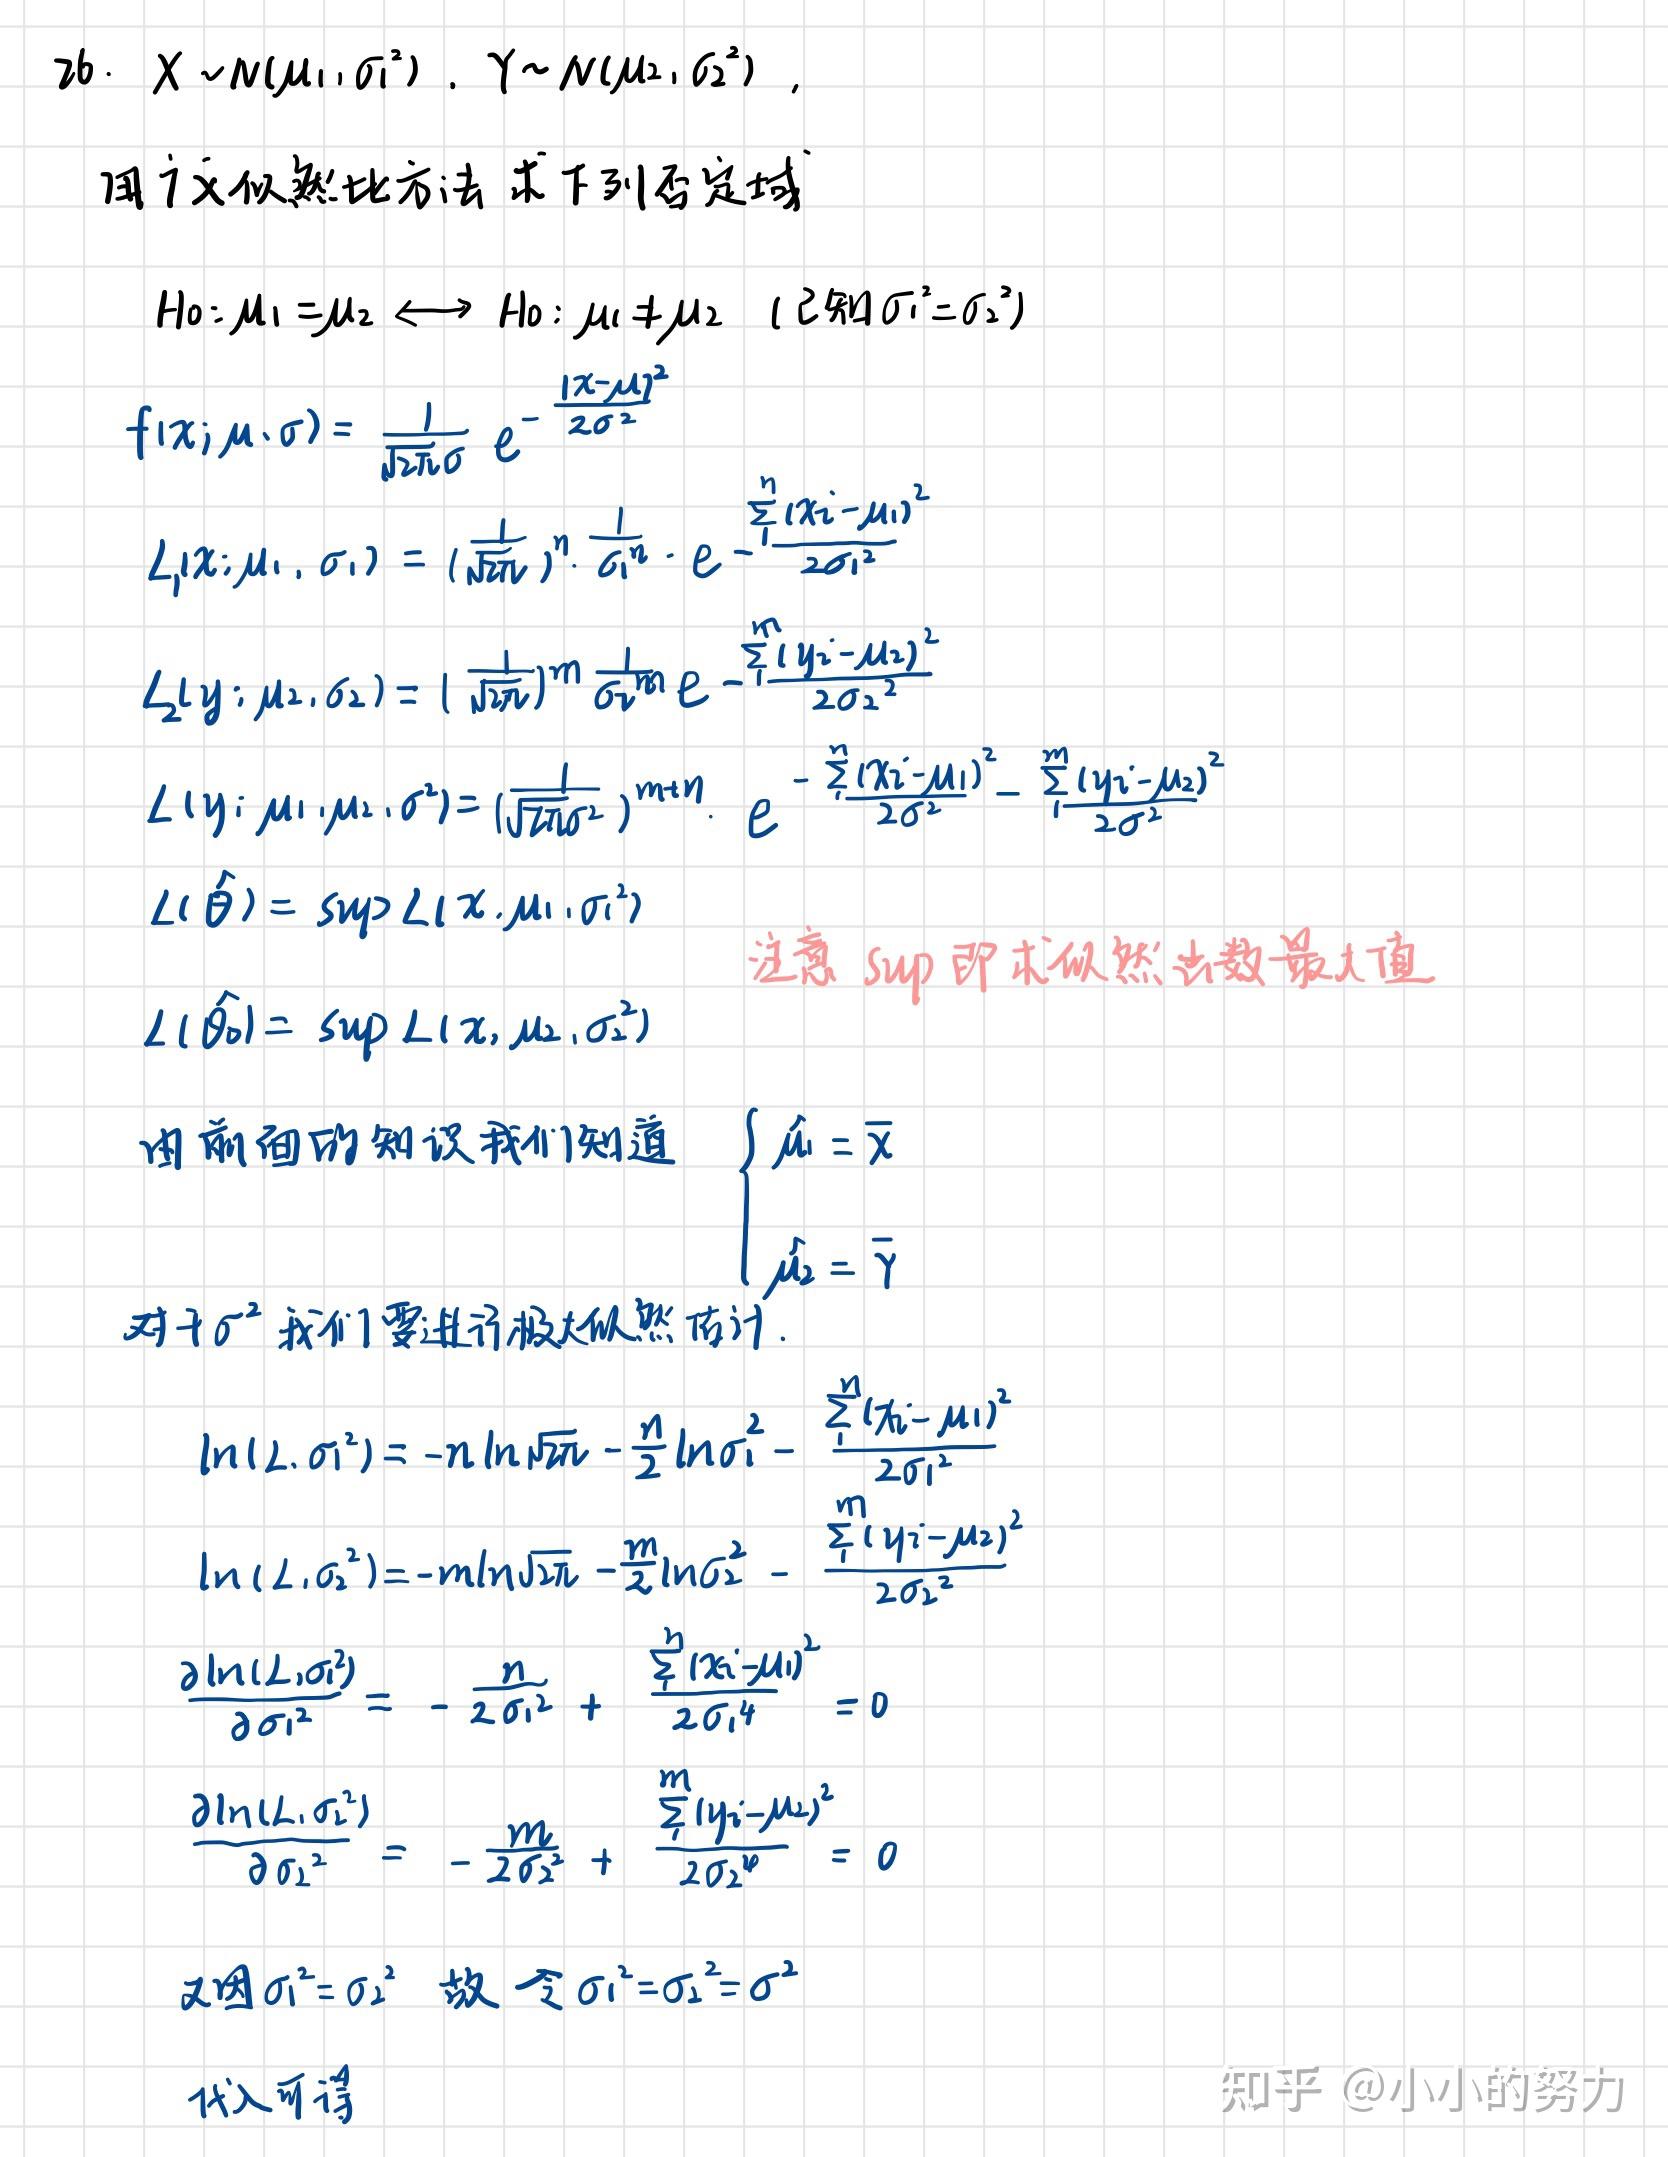 26. X ~ N(μ₁, σ₁²). Y ~ N(μ₂, σ₂²),
用广义似然比方法求下列否定域
H₀: μ₁ = μ₂ ⟷ H₀: μ₁ ≠ μ₂ (已知 σ₁² = σ₂²)
f(x; μ、σ) = 1/(√2π σ) e^(-(x-μ)²/(2σ²))
L₁(x; μ₁, σ₁) = (1/√2π)ⁿ · 1/σ₁ⁿ · e^(-∑₁ⁿ(xᵢ-μ₁)²/(2σ₁²))
L₂(y; μ₂, σ₂) = (1/√2π)ᵐ 1/σ₂ᵐ e^(-∑₁ᵐ(yᵢ-μ₂)²/(2σ₂²))
L(y; μ₁, μ₂, σ²) = (1/√2πσ²)ᵐ⁺ⁿ · e^(-∑₁ⁿ(xᵢ-μ₁)²/(2σ²) - ∑₁ᵐ(yᵢ-μ₂)²/(2σ²))
L(θ̂) = sup L(x, μ₁, σ₁²)
注意 sup 即求似然函数最大值
L(θ̂₀) = sup L(x, μ₂, σ₂²)
由前面的知识我们知道 { μ̂₁ = X̄
μ̂₂ = Ȳ
对于σ² 我们要进行极大似然估计.
ln(L, σ₁²) = -n ln√2π - n/2 lnσ₁² - ∑₁ⁿ(xᵢ-μ₁)²/(2σ₁²)
ln(L, σ₂²) = -m ln√2π - m/2 lnσ₂² - ∑₁ᵐ(yᵢ-μ₂)²/(2σ₂²)
∂ln(L, σ₁²)/∂σ₁² = - n/(2σ₁²) + ∑₁ⁿ(xᵢ-μ₁)²/(2σ₁⁴) = 0
∂ln(L, σ₂²)/∂σ₂² = - m/(2σ₂²) + ∑₁ᵐ(yᵢ-μ₂)²/(2σ₂⁴) = 0
又因 σ₁² = σ₂² 故 令 σ₁² = σ₂² = σ²
代入可得
知乎 @小小的努力